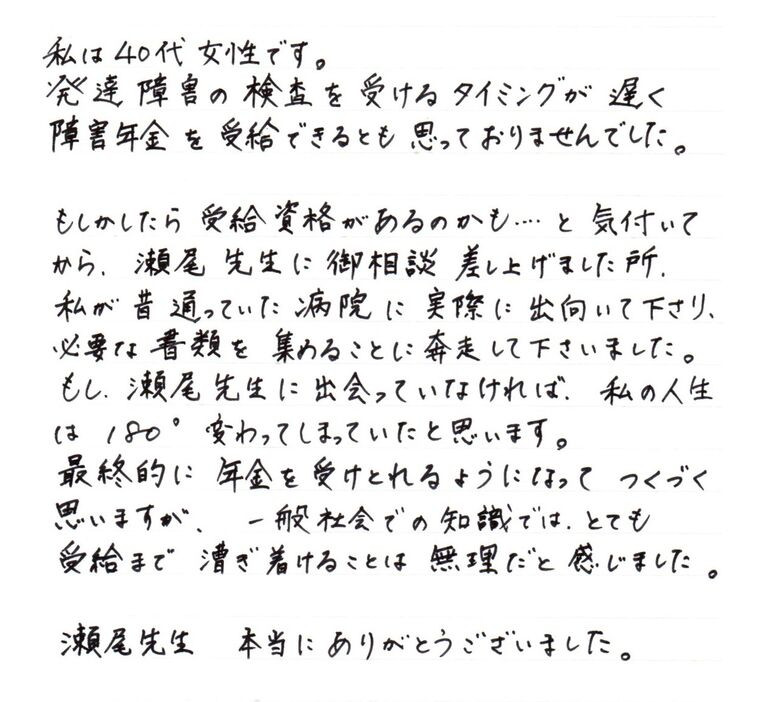 私は40代女性です。
発達障害の検査を受けるタイミングが遅く
障害年金を受給できるとも思っておりませんでした。
もしかしたら受給資格があるのかも‥‥と気付いて
から、瀬尾先生に御相談差し上げました所、
私が昔通っていた病院に実際に出向いて下さり、
必要な書類を集めることに奔走して下さいました。
もし、瀬尾先生に出会っていなければ、私の人生
は180°変わってしまっていたと思います。
最終的に年金を受けとれるようになってつくづく
思いますが、一般社会での知識では、とても
受給まで漕ぎ着けることは無理だと感じました。
瀬尾先生 本当にありがとうございました。